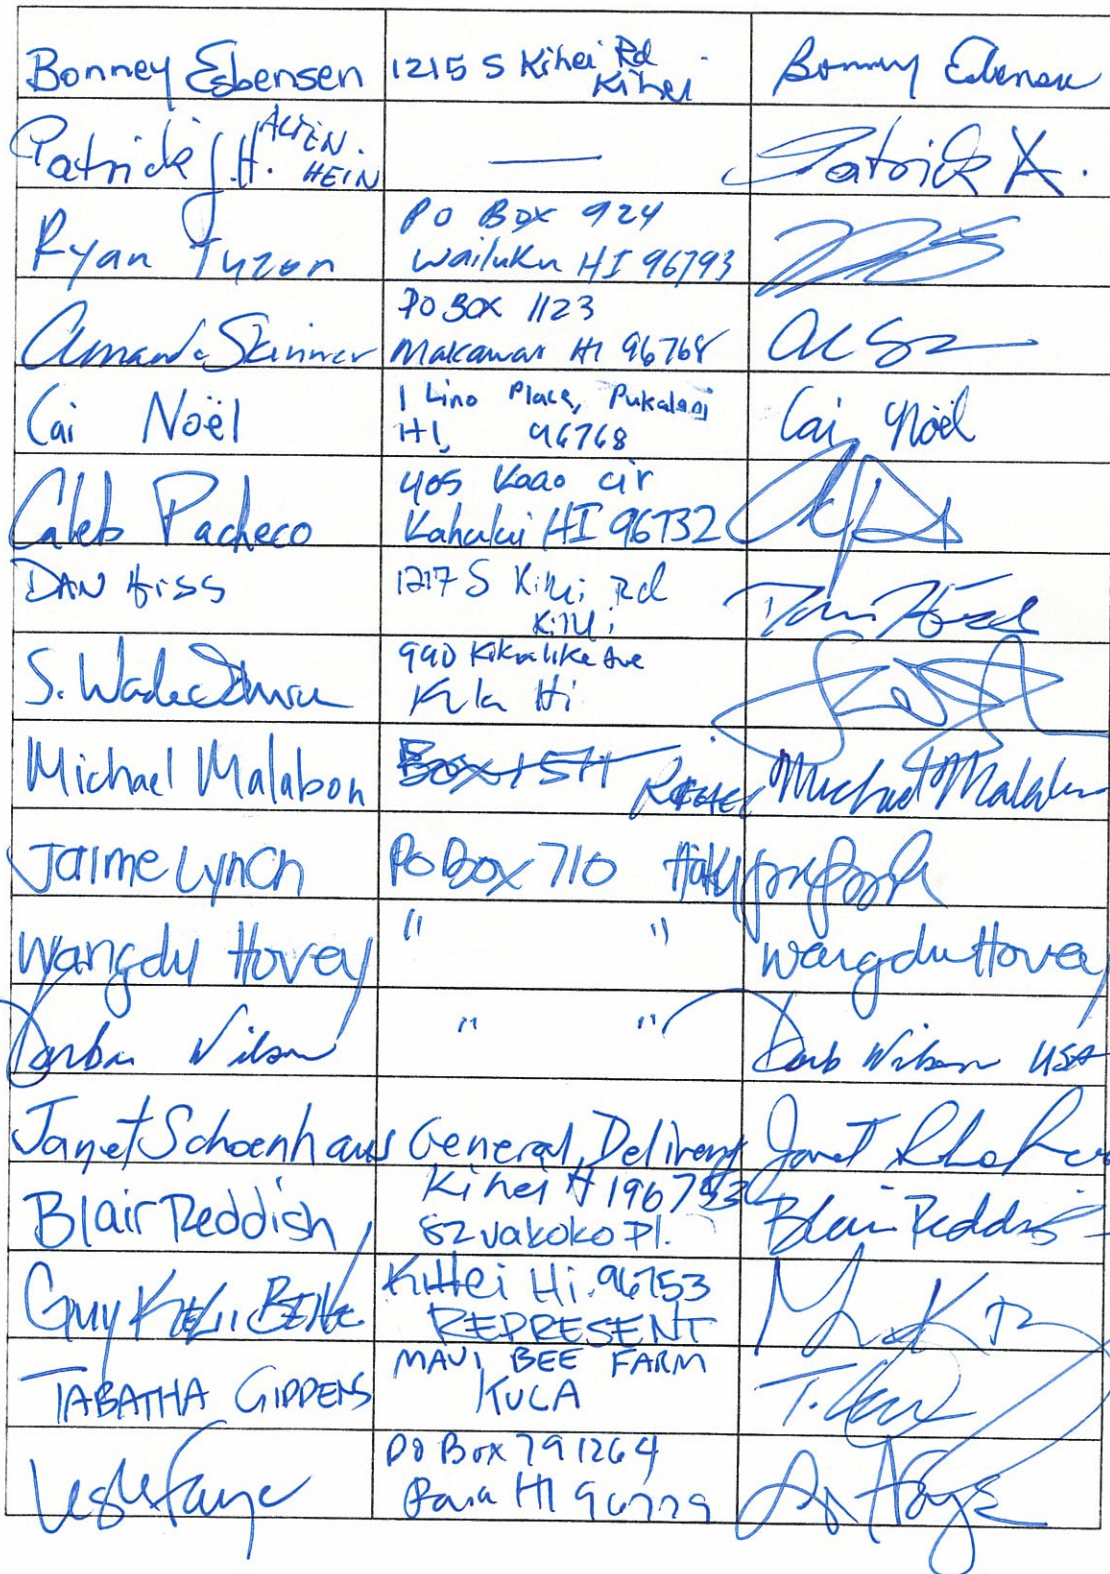 Bonney Esbensen 1215 S Kihei Rd Bonney Esbensen
Kihei
Patrick J.H. ALIEN. HEIN — Patrick
Ryan Tuzon PO Box 924
Wailuku HI 96793
Amanda Skinner PO BOX 1123
Makawao HI 96768
Cai Noël 1 Lino Place, Pukalani Cai Noël
HI, 96768
Caleb Pacheco 405 Kaao cir
Kahului HI 96732
DAN Hiss 1217 S Kihei Rd
Kihei
S. Wade 990 Ave
Kula Hi
Michael Malabon Box 1511 Michael Malabon
Jaime Lynch PO Box 710 Haiku
Wangdu Hovey " " Wangdu Hovey
Wilson " " Darb Wilson USA
Janet Schoenhaus General Delivery Janet
Kihei HI 96753
Blair Reddish 82 Uakoko Pl. Blair Reddish
Guy Kihei Hi. 96753
REPRESENT
TABATHA GIDDENS MAUI BEE FARM T.
KULA
Leslie Faye PO Box 791264
Paia HI 96779